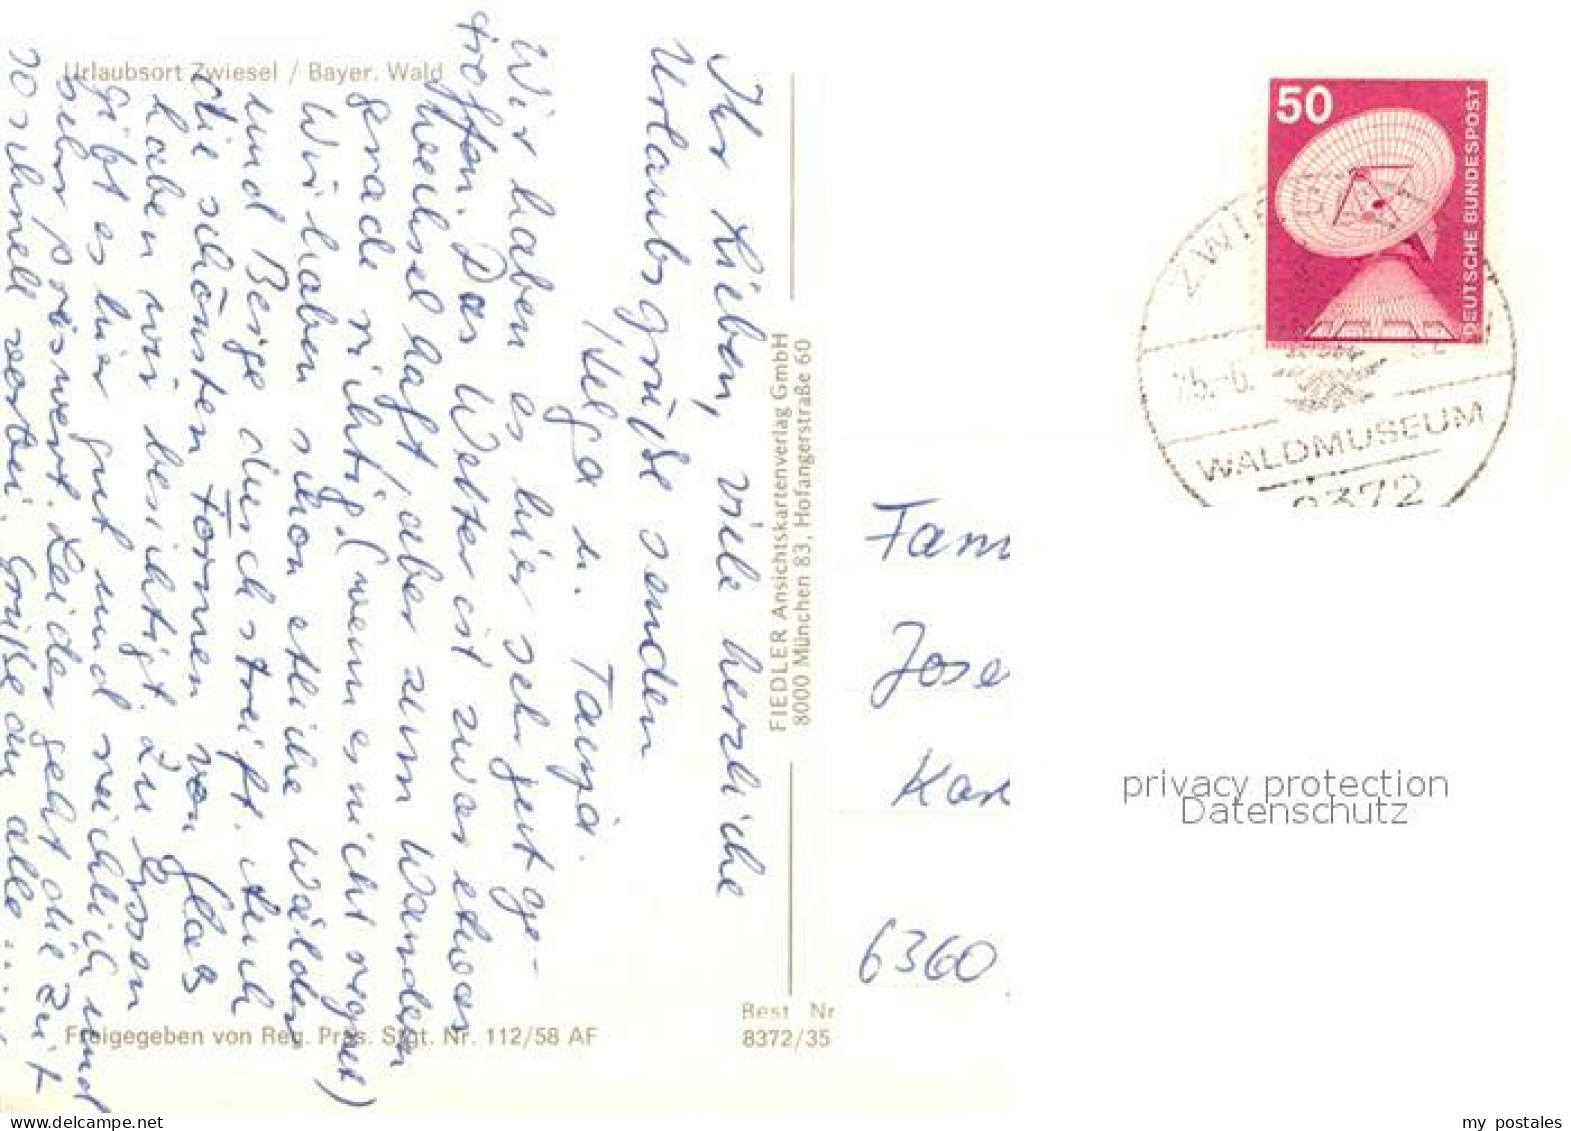 Urlaubsort Zwiesel / Bayer. Wald
Ihr Lieben, viele herzliche
Urlaubsgrüße senden
Helga u. Tanja.
Wir haben es hier sehr gut ge-
troffen. Das Wetter ist zwar etwas
wechselhaft, aber zum Wandern
gerade richtig. (wenn es nicht regnet)
Wir haben schon etliche Wälder
und Berge durchstreift. Auch
die schönsten Formen von Glas
haben wir besichtigt. Zu Essen
gibt es hier gut und reichlich und
sehr preiswert. Leider geht die Zeit
so schnell vorbei. Grüße an alle .....
Freigegeben von Reg. Präs. Stgt. Nr. 112/58 AF
FIEDLER Ansichtskartenverlag GmbH
8000 München 83, Hofangerstraße 60
Best Nr
8372/35
50
DEUTSCHE BUNDESPOST
ZWI
25.-6.
WALDMUSEUM
8372
Fam
Jose
Kar
6360
privacy protection
Datenschutz
www.delcampe.net
my_postales